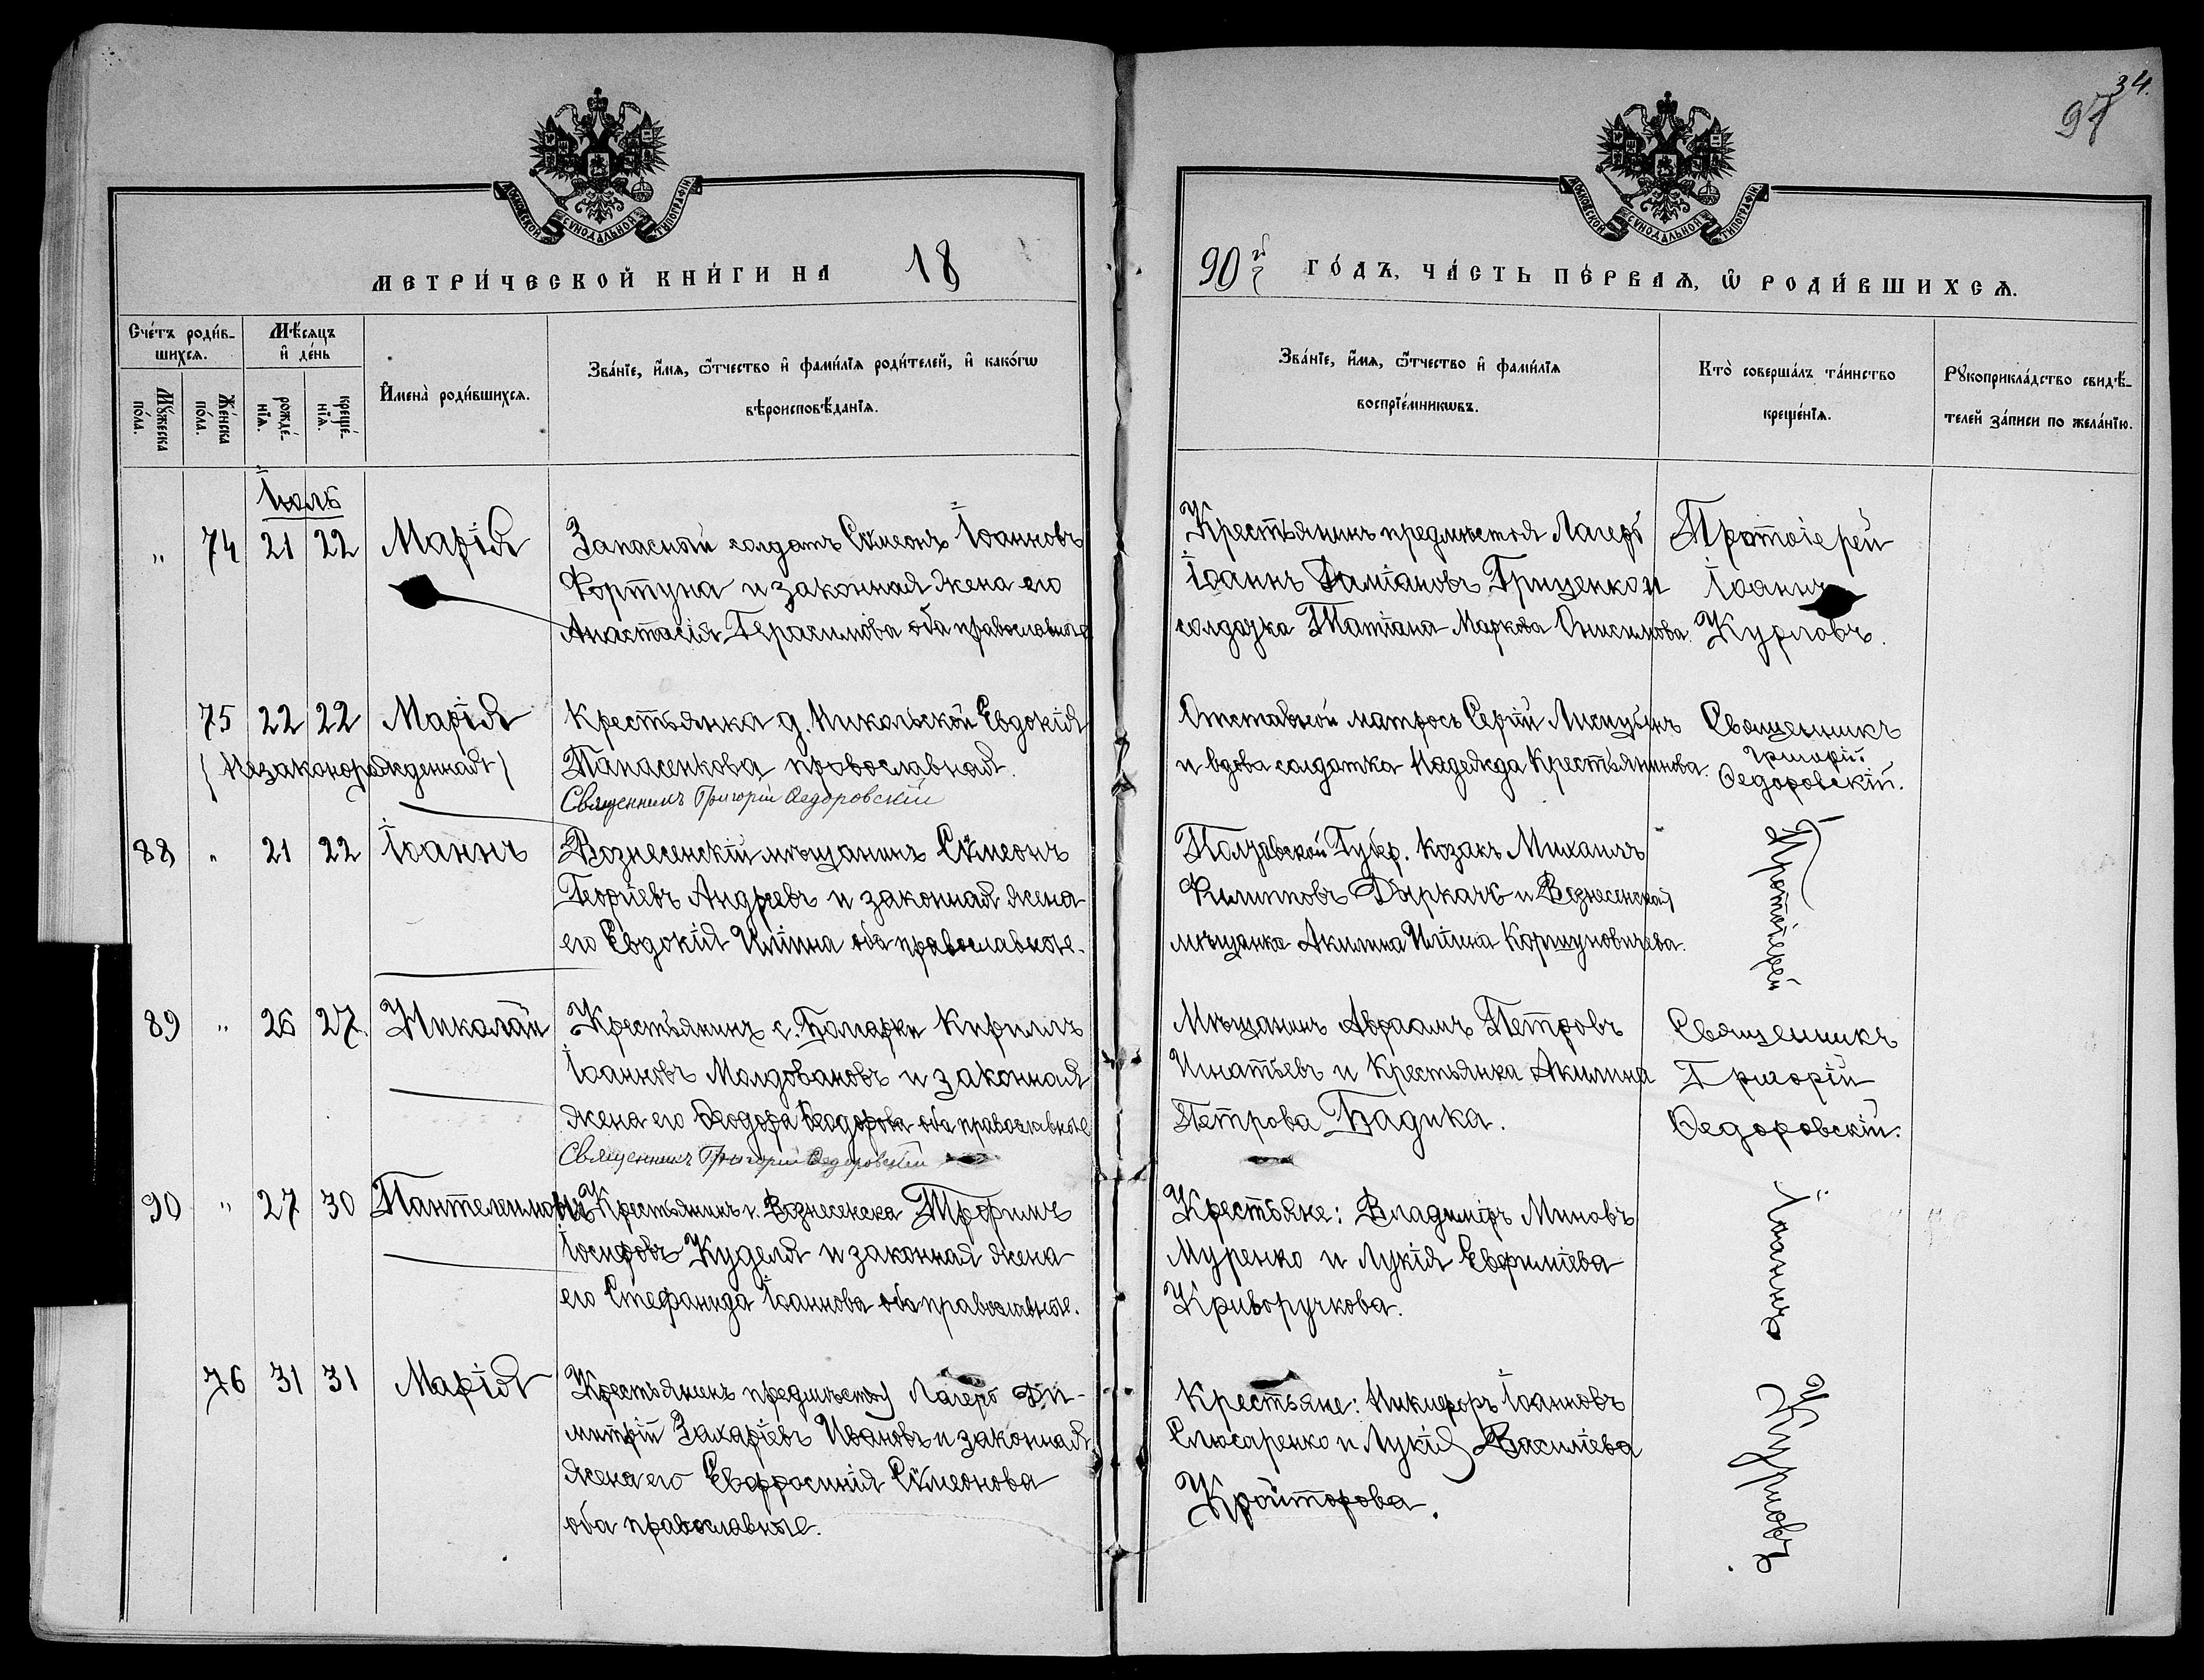 34.
97
МОСКОВСКОЙ СУНОДАЛЬНОЙ ТИПОГРАФІИ.
МОСКОВСКОЙ СУНОДАЛЬНОЙ ТИПОГРАФІИ.
МЕТРИ́ЧЕСКОЙ КНИ́ГИ НА 18
90й ГО́ДЪ, ЧА́СТЬ ПЕ́РВАѦ, Ѡ РОДИ́ВШИХСѦ.
Сче́тъ роди́в-
шихсѧ.
Мꙋ́жеска
по́ла.
Же́нска
по́ла.
Мѣ́сѧцъ
и҆ де́нь
рожде́-
нїѧ.
креще́-
нїѧ.
И҆мена̀ роди́вшихсѧ.
Зва́нїе, и҆́мѧ, ѻ҆́тчество и҆ фами́лїѧ роди́телей, и҆ како́гѡ
вѣроисповѣ́данїѧ.
Зва́нїе, и҆́мѧ, ѻ҆́тчество и҆ фами́лїѧ
воспрїе́мникѡвъ.
Кто̀ соверша́лъ та́инство
креще́нїѧ.
Рꙋкоприкла́дство свидѣ́-
телей за́писи по жела́нїю.
Іюль
" 74 21 22 Марія
Запасный солдатъ Сѵмеонъ Іоанновъ
Фортуна и законная жена его
Анастасія Герасимова оба православные
Крестьянинъ предмѣстья Лагерь
Іоаннъ Даміановъ Гриценко и
солдатка Татіана Маркова Онисимова.
Протоіерей
Іоаннъ
Курловъ.
75 22 22 Марія
(Незаконорожденная)
Крестьянка д. Никольской Евдокія
Танасенкова православная.
Священникъ Григорій Ѳедоровскій
Отставной матросъ Сергій
и вдова солдатка Надежда Крестьянинова.
Священникъ
Григорій
Ѳедоровскій.
88 " 21 22 Іоаннъ
Вознесенскій мѣщанинъ Сѵмеонъ
Георгіевъ Андреевъ и законная жена
его Евдокія Иліина оба православные.
Полтавской Губер. Козакъ Михаилъ
Филипповъ Дыркачъ и Вознесенская
мѣщанка Акилина Иліина Коршуновичева.
Протоіерей
89 " 26 27. Николай
Крестьянинъ с. Болгарки Кириллъ
Іоанновъ Молдовановъ и законная
жена его Ѳеодора Ѳеодорова оба православные
Священникъ Григорій Ѳедоровскій
Мѣщанинъ Авраамъ Петровъ
Игнатьевъ и Крестьянка Акилина
Петрова Бадика.
Священникъ
Григорій
Ѳедоровскій.
90 " 27 30 Пантелеимонъ
Крестьянинъ г. Вознесенска Трофимъ
Іосифовъ Куделя и законная жена
его Стефанида Іоаннова оба православные.
Крестьяне: Владиміръ Миновъ
Муренко и Лукія Евфиміева
Криворучкова.
Іоаннъ
76 31 31 Марія
Крестьянинъ предмѣстья Лагерь Ди-
митрій Захаріевъ Ивановъ и законная
жена его Евфросинія Сѵмеонова
оба православные.
Крестьяне: Никифоръ Іоанновъ
Слюсаренко и Лукія Василіева
Кройторова.
Курловъ.